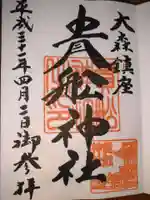 大森鎮座
貴船神社
平成三十一年四月二日御参拝